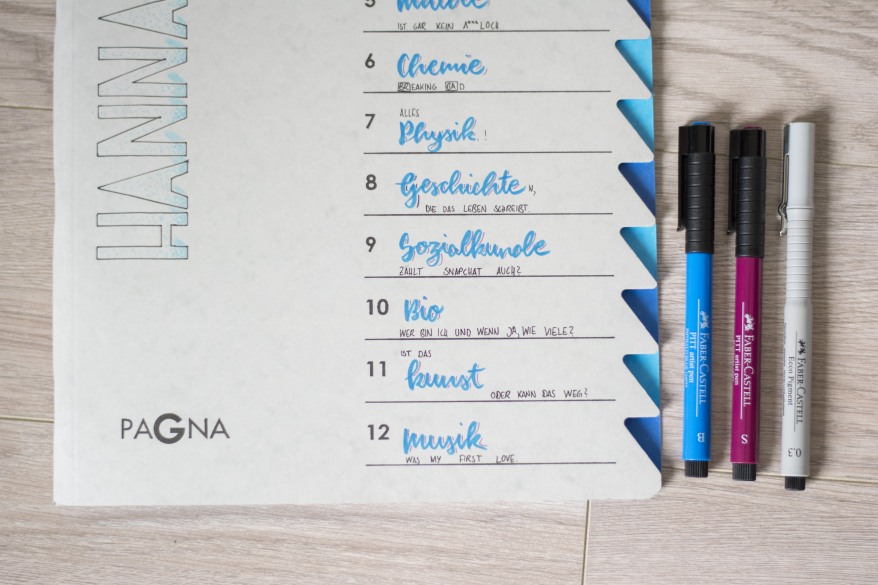 HANNAH
5 Mathe
IST GAR KEIN A***LOCH
6 Chemie
BREAKING BAD
7 ALLES
Physik!
8 Geschichten,
DIE DAS LEBEN SCHREIBT.
9 Sozialkunde
ZÄHLT SNAPCHAT AUCH?
10 Bio
WER BIN ICH UND WENN JA, WIE VIELE?
IST DAS
11 kunst
ODER KANN DAS WEG?
12 musik
WAS MY FIRST LOVE.
PAGNA
FABER-CASTELL
PITT artist pen
B
FABER-CASTELL
PITT artist pen
S
FABER-CASTELL
Ecco Pigment
0.3